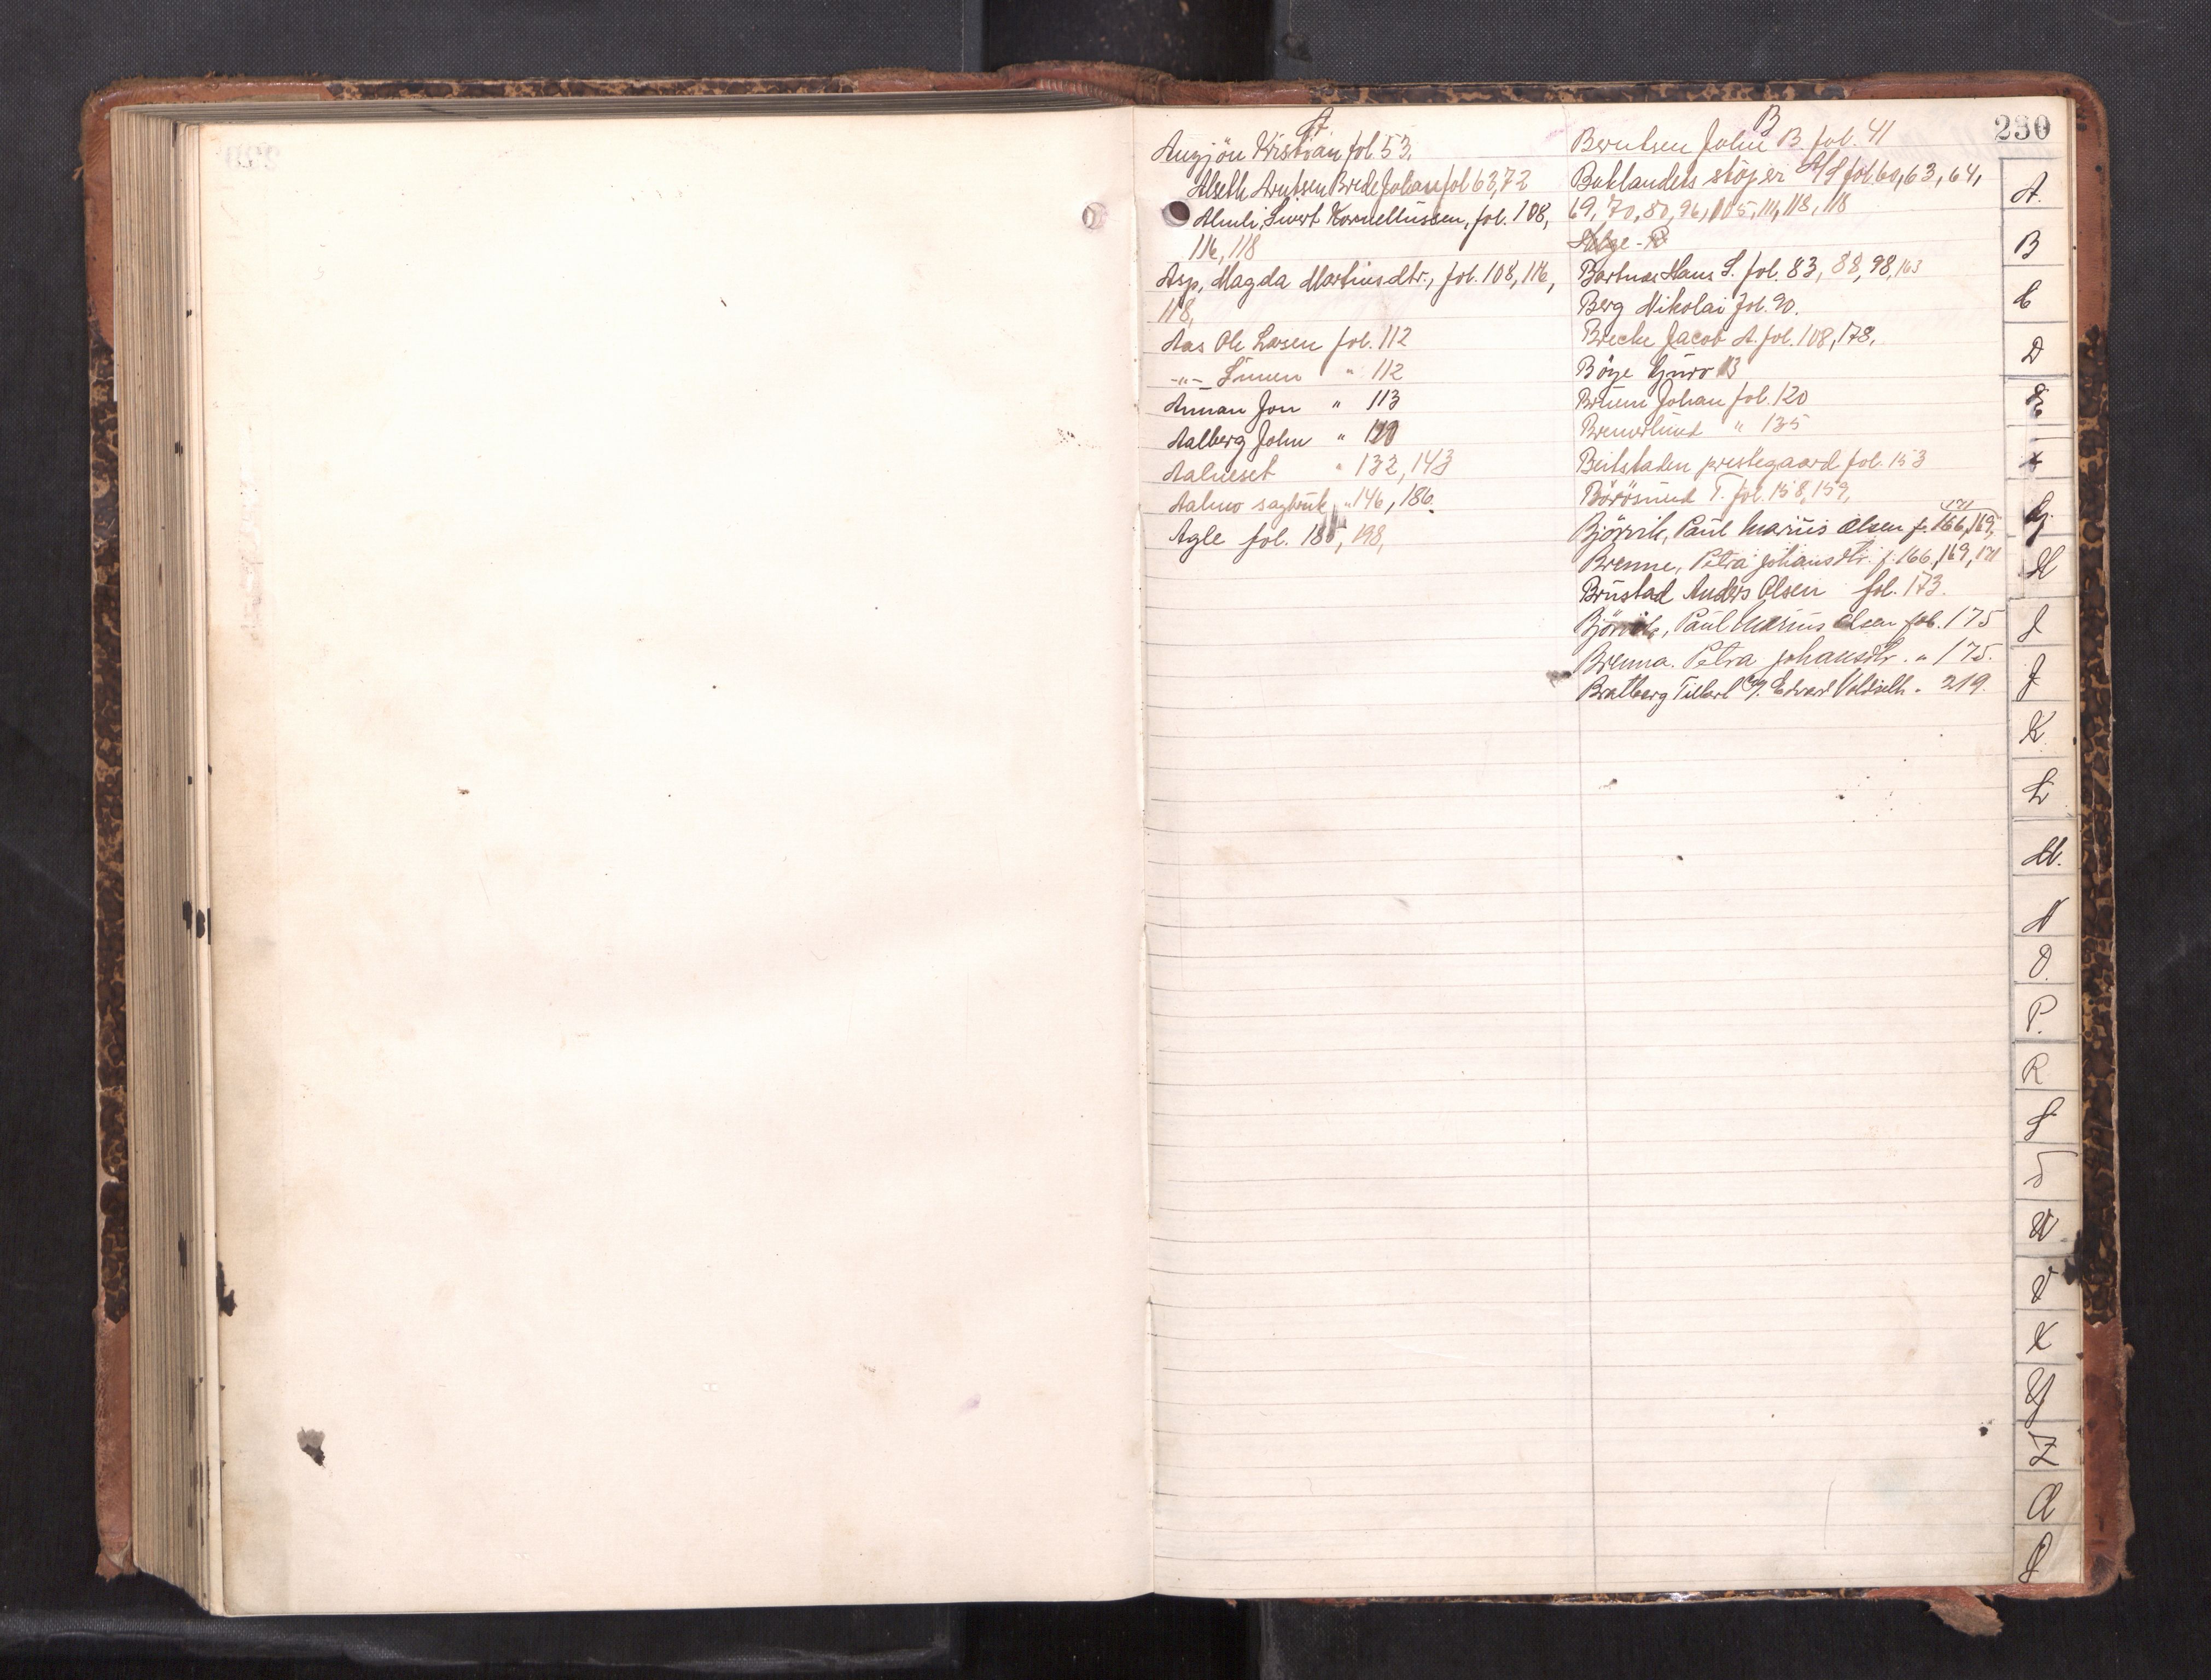 230
A.
Kristian fol. 53.
Alseth Arntsen Brede Johan fol 63,72
Almli, Sivert Korneliussen, fol. 108,
116, 118
Asp, Magda Martinsdtr., fol. 108, 116,
118,
Aas Ole Larsen fol. 112
-"- Simen " 112
Annan Jon " 113
Aalberg John " 120
Aalneset " 132, 143
Aalmo sagbruk " 146, 186.
Agle fol. 186, 198,
B
Berntsen John B. fol. 41
Baklandets støperi A/S fol. 60, 63, 64,
69, 70, 80, 96, 105, 111, 118, 118
Helge - R
Bartnes Hans S. fol. 83, 88, 98, 163
Berg Nikolai fol. 90.
Brecke Jacob A. fol. 108, 178,
Böye Guro 113
Bruem Johan fol. 120
" 135
Beitstaden prestegaard fol. 153
Börösund T. fol. 158, 159,
171
Björvik, Paul Marius Olsen f. 166, 169,
Brenne, Petra Johansdtr. f. 166, 169, 171
Brustad Anders Olsen fol. 173.
Björvik, Paul Marius Olsen fol. 175
Brenna. Petra Johansdtr. " 175.
Bratberg Edvard " 219.
A.
B
C
D
E
F
G.
H
I
J
K
L
M.
N
O.
P.
R
S
T
U
V
X
Y
Z
Æ
Ø